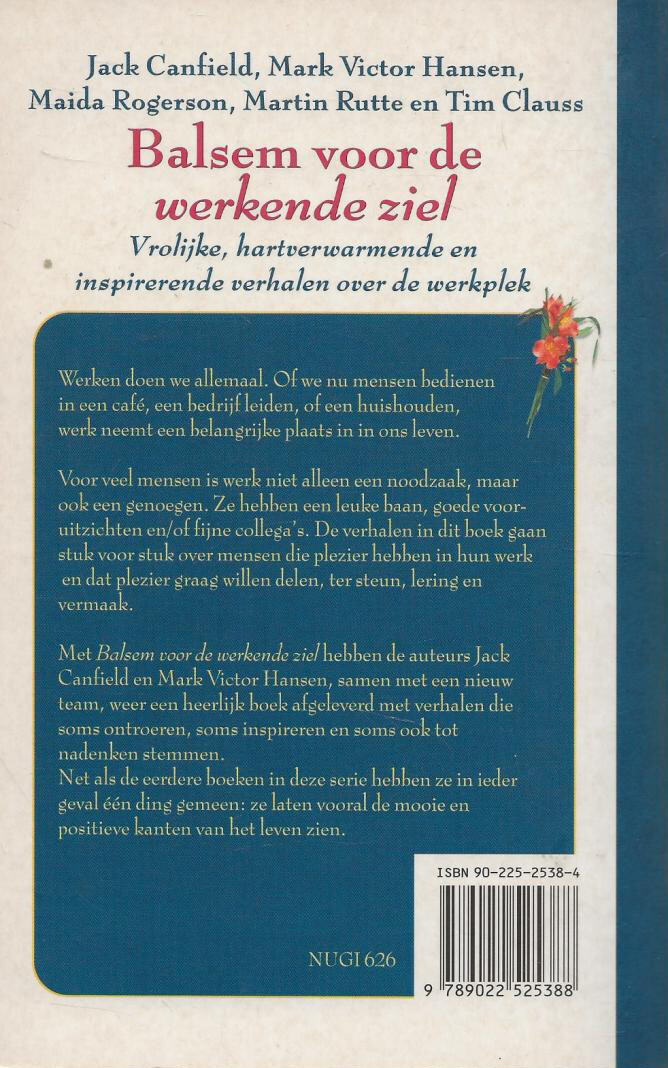 Jack Canfield, Mark Victor Hansen,
Maida Rogerson, Martin Rutte en Tim Clauss
Balsem voor de
werkende ziel
Vrolijke, hartverwarmende en
inspirerende verhalen over de werkplek
Werken doen we allemaal. Of we nu mensen bedienen
in een café, een bedrijf leiden, of een huishouden,
werk neemt een belangrijke plaats in in ons leven.
Voor veel mensen is werk niet alleen een noodzaak, maar
ook een genoegen. Ze hebben een leuke baan, goede voor-
uitzichten en/of fijne collega's. De verhalen in dit boek gaan
stuk voor stuk over mensen die plezier hebben in hun werk
en dat plezier graag willen delen, ter steun, lering en
vermaak.
Met Balsem voor de werkende ziel hebben de auteurs Jack
Canfield en Mark Victor Hansen, samen met een nieuw
team, weer een heerlijk boek afgeleverd met verhalen die
soms ontroeren, soms inspireren en soms ook tot
nadenken stemmen.
Net als de eerdere boeken in deze serie hebben ze in ieder
geval één ding gemeen: ze laten vooral de mooie en
positieve kanten van het leven zien.
ISBN 90-225-2538-4
NUGI 626
9 789022 525388